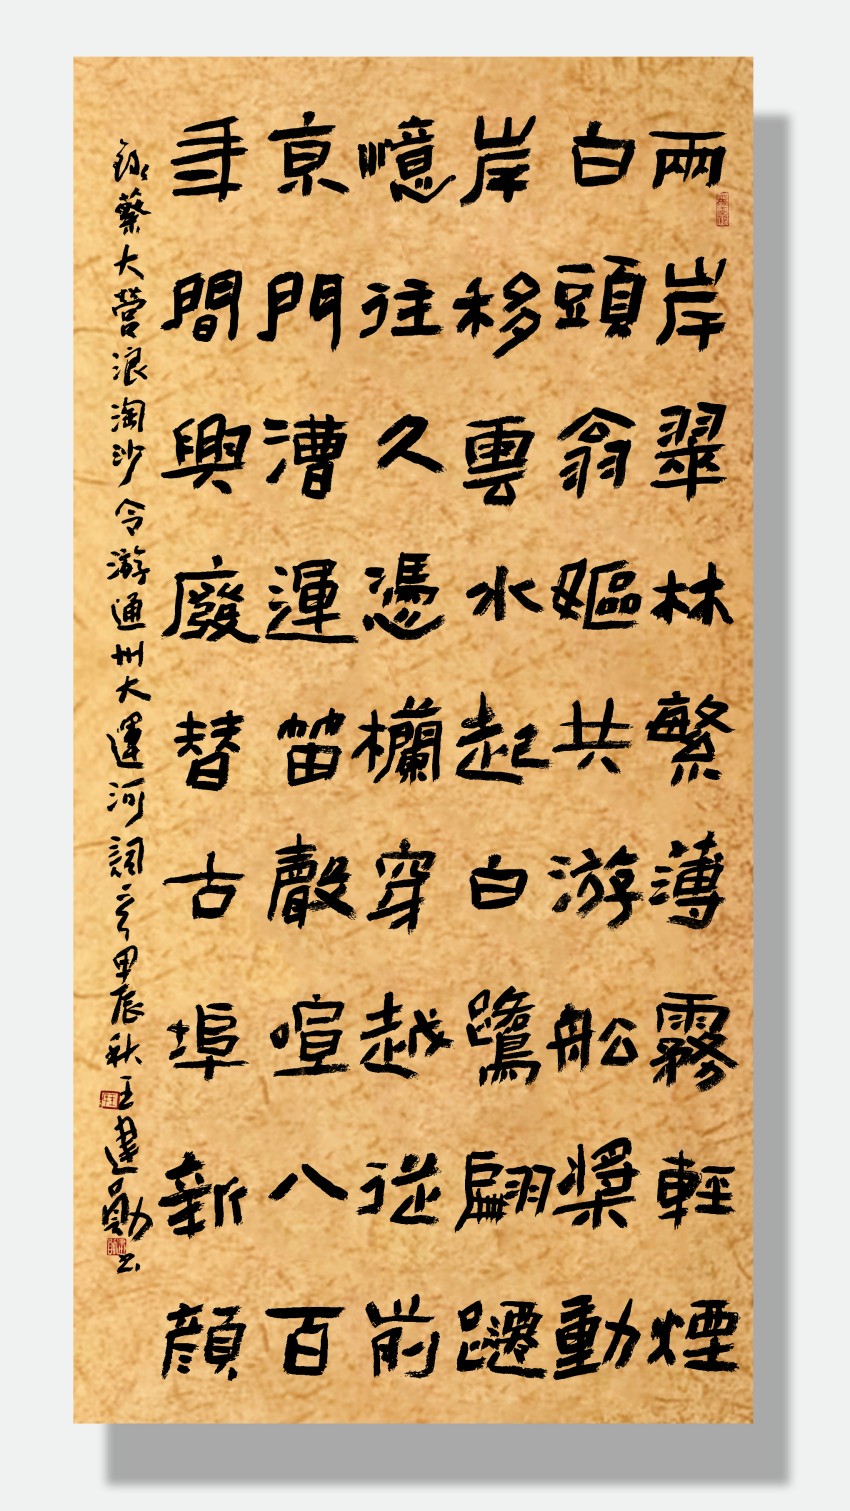 兩岸翠林繁薄霧輕煙
白頭翁嫗共游舩槳動
岸移雲水起白鷺翩躚
憶往久憑欄穿越從前
京門漕運笛聲喧八百
年間興廢替古埠新顔
錄蔡大營浪淘沙令游通州大運河詞一首甲辰秋王建勛書